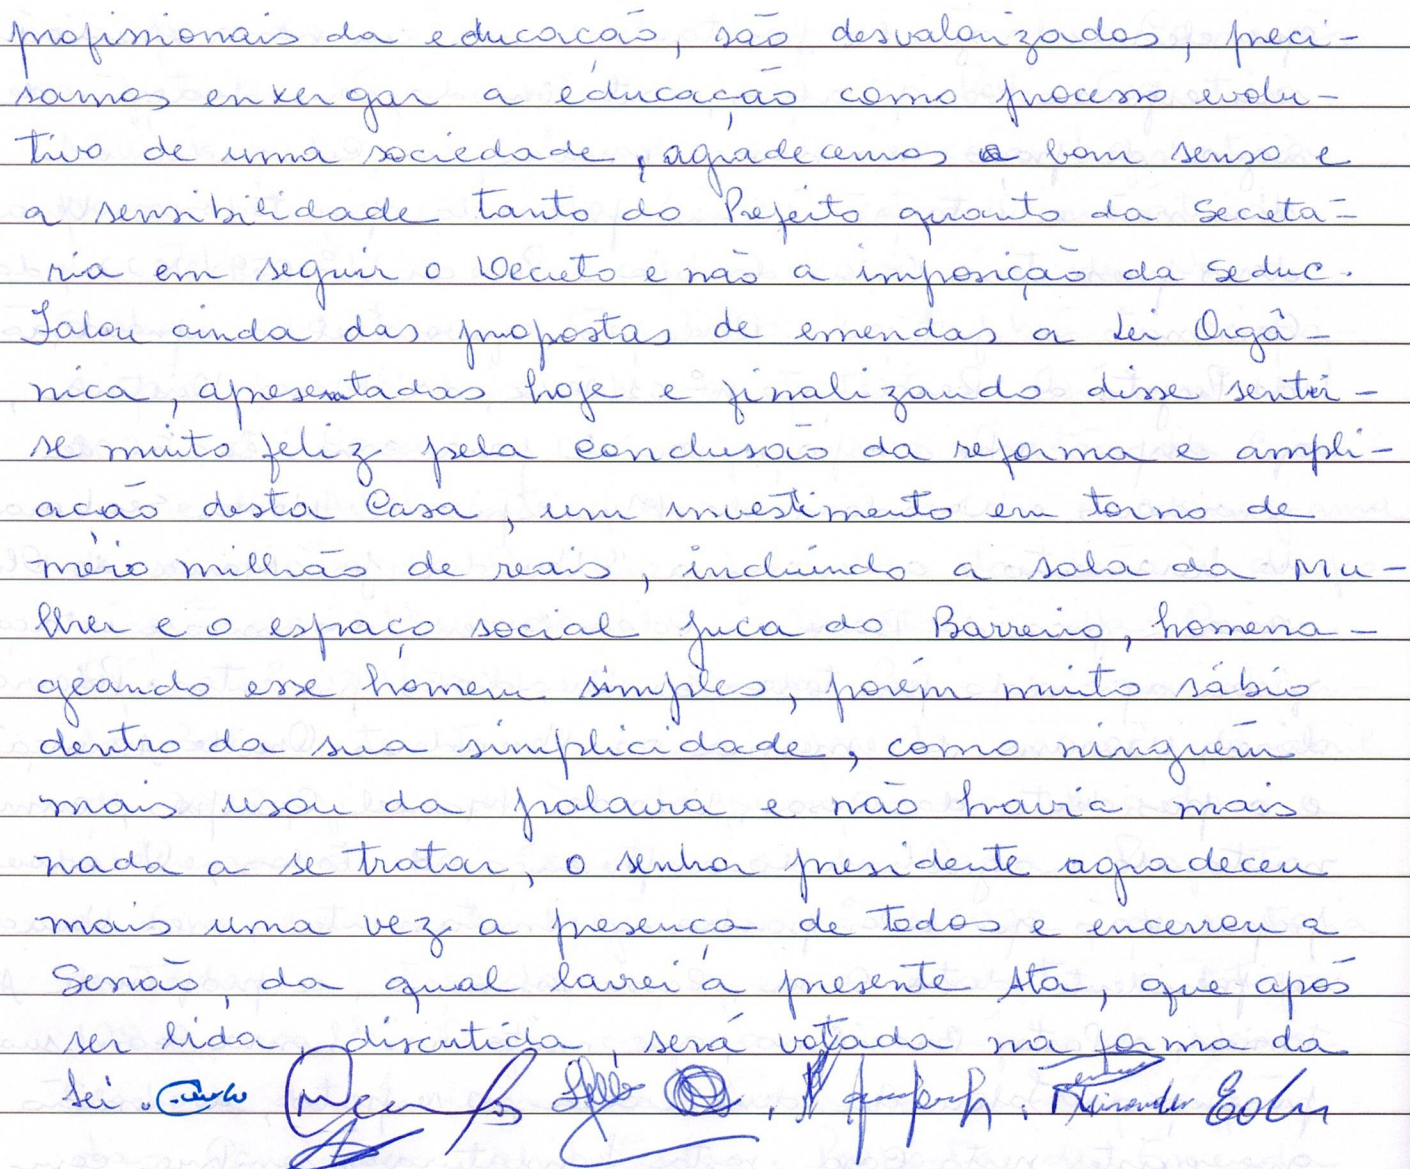 profissionais da educação, são desvalorizados, preci-
samos enxergar a educação como processo evolu-
tivo de uma sociedade, agradecemos o bom senso e
a sensibilidade tanto do Prefeito quanto da Secretá-
ria em seguir o Decreto e não a imposição da Seduc.
Falou ainda das propostas de emendas a Lei Orgâ-
nica, apresentadas hoje e finalizando disse sentir-
se muito feliz pela conclusão da reforma e ampli-
ação desta Casa, um investimento em torno de
meio milhão de reais, incluíndo a sala da Mu-
lher e o espaço social Juca do Barreiro, homena-
geando esse homem simples, porém muito sábio
dentro da sua simplicidade, como ninguém
mais usou da palavra e não havia mais
nada a se tratar, o senhor presidente agradeceu
mais uma vez a presença de todos e encerrou a
Sessão, da qual lavrei a presente Ata, que após
ser lida, discutida, será votada na forma da
Lei.